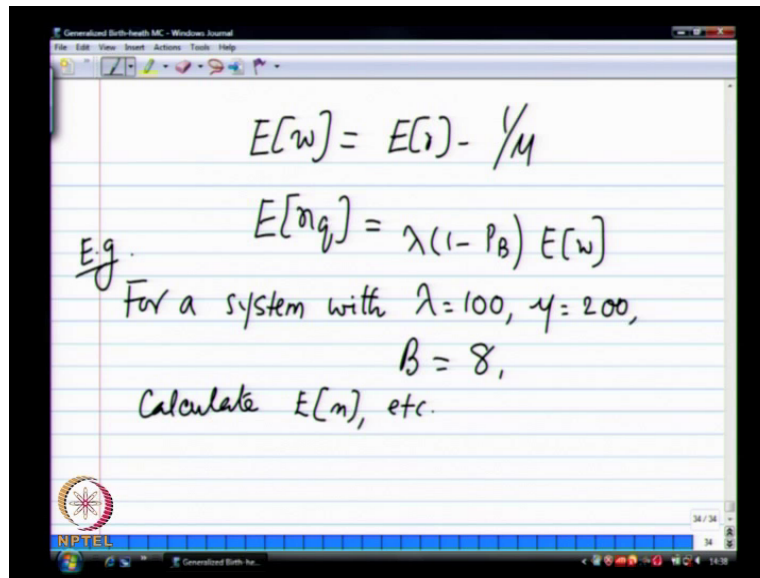 Generalized Birth-heath MC - Windows Journal
File Edit View Insert Actions Tools Help
E[w] = E[r] - 1/μ
E[nq] = λ(1 - PB) E[w]
E.g.
For a system with λ = 100, μ = 200,
B = 8,
Calculate E[n], etc.
34 / 34
34
NPTEL
Generalized Birth-he...
14:38